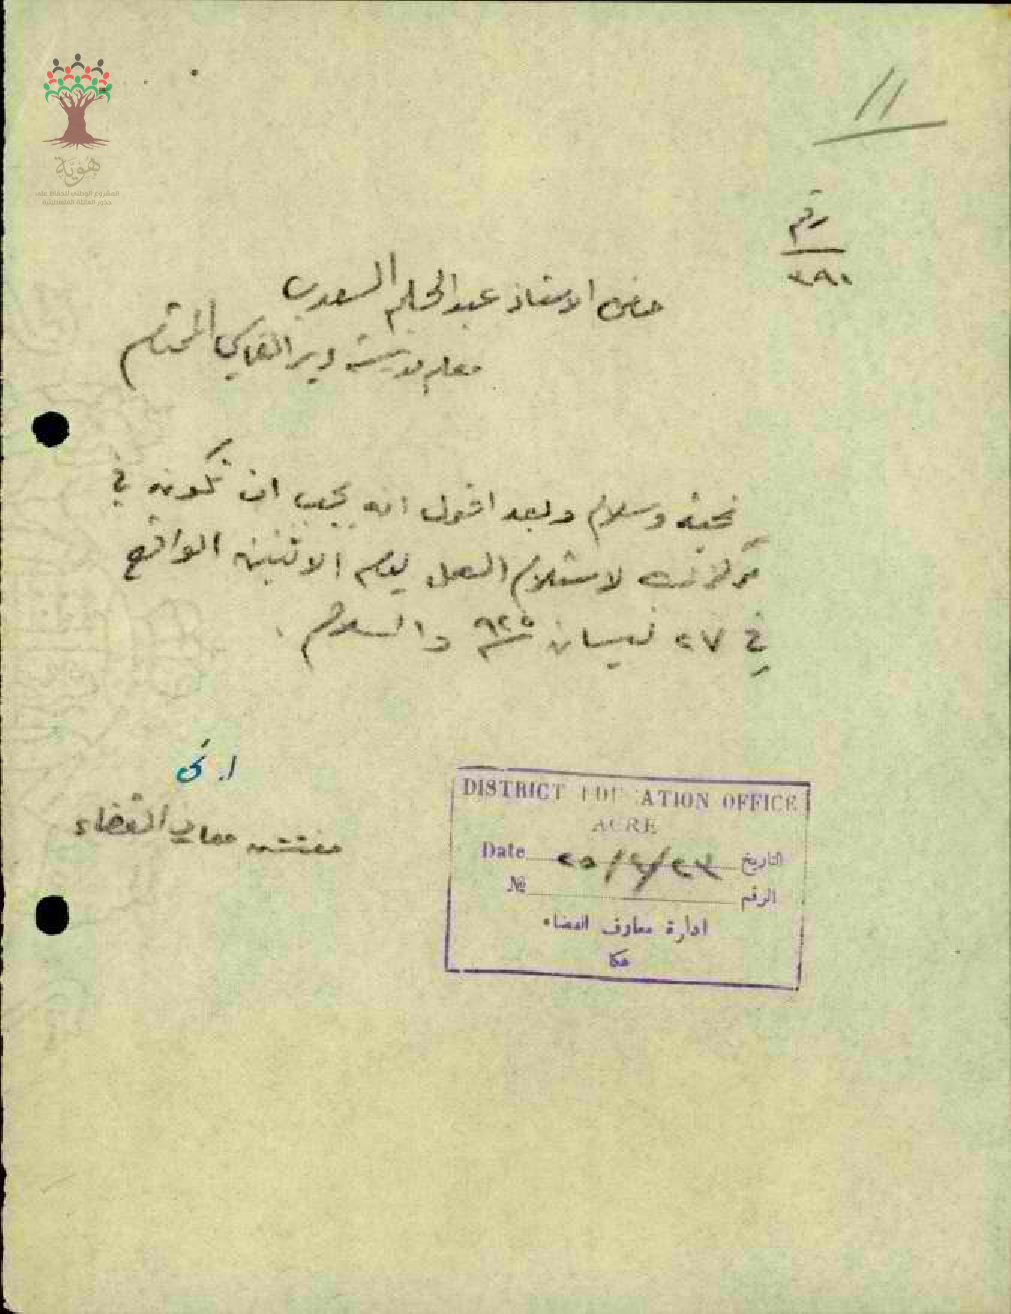 هوية
المشروع الوطني للحفاظ على
جذور العائلة الفلسطينية
11
رقم
٣٩١
حضرة الاستاذ عبد الحليم السعدي
معلم مدرسة دير القاسي المحترم
تحية وسلام وبعد اقول انه يجب ان تكون في
مركزك لاستلام العمل يوم الاثنين الواقع
في ٢٧ نيسان ٩٢٥ والسلام .
مفتش معارف القضاء
DISTRICT EDUCATION OFFICE
ACRE
Date ٢٥/٤/٢٣ التاريخ
№ الرقم
ادارة معارف القضاء
عكا